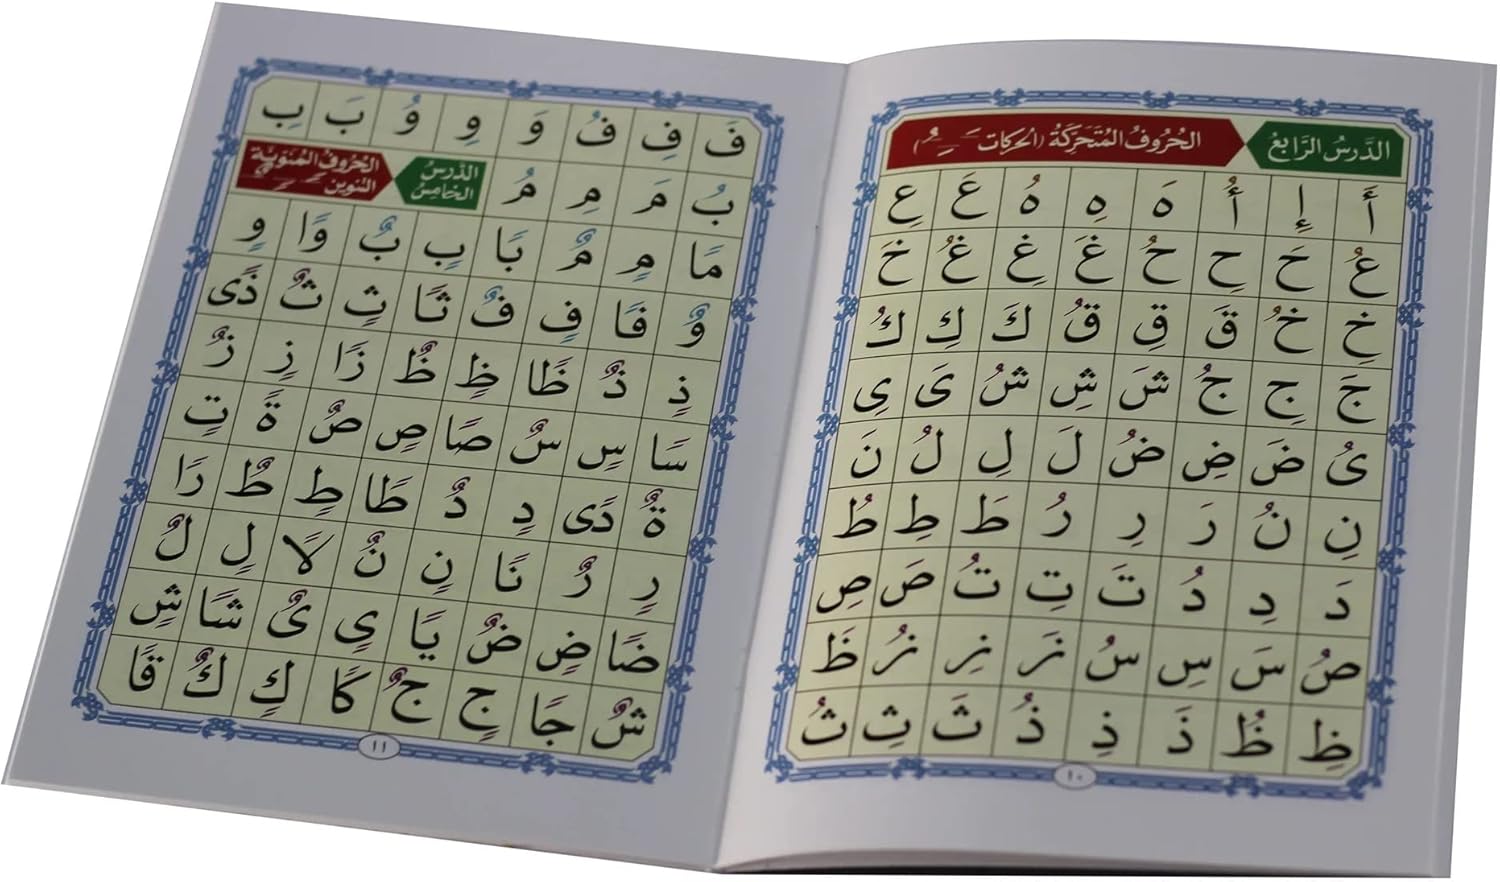 الدَّرسُ الرَّابِعُ الحُرُوفُ المُتَحَرِّكَةُ (الحركات ـَ ـِ ـُ)
أَ إِ أُ هَ هِ هُ عَ عِ
عُ حَ حِ حُ غَ غِ غُ خَ
خِ خُ قَ قِ قُ كَ كِ كُ
جَ جِ جُ شَ شِ شُ يَ يِ
يُ ضَ ضِ ضُ لَ لِ لُ نَ
نِ نُ رَ رِ رُ طَ طِ طُ
دَ دِ دُ تَ تِ تُ صَ صِ
صُ سَ سِ سُ زَ زِ زُ ظَ
ظِ ظُ ذَ ذِ ذُ ثَ ثِ ثُ
١٠
فَ فِ فُ وَ وِ وُ بَ بِ
بُ مَ مِ مُ
الدَّرسُ الخَامِسُ
الحُرُوفُ المُنَوَّنَةُ التنوين ـً ـٍ ـٌ
مًا مٍ مٌ بًا بٍ بٌ وًا وٍ
وٌ فًا فٍ فٌ ثًا ثٍ ثٌ ذًى
ذٍ ذٌ ظًا ظٍ ظٌ زًا زٍ زٌ
سًا سٍ سٌ صًا صٍ صٌ ةً تٍ
ةٌ دًى دٍ دٌ طًا طٍ طٌ رًا
رٍ رٌ نًا نٍ نٌ لًا لٍ لٌ
ضًا ضٍ ضٌ يًا يٍ يٌ شًا شٍ
شٌ جًا جٍ جٌ كًا كٍ كٌ قًا
١١